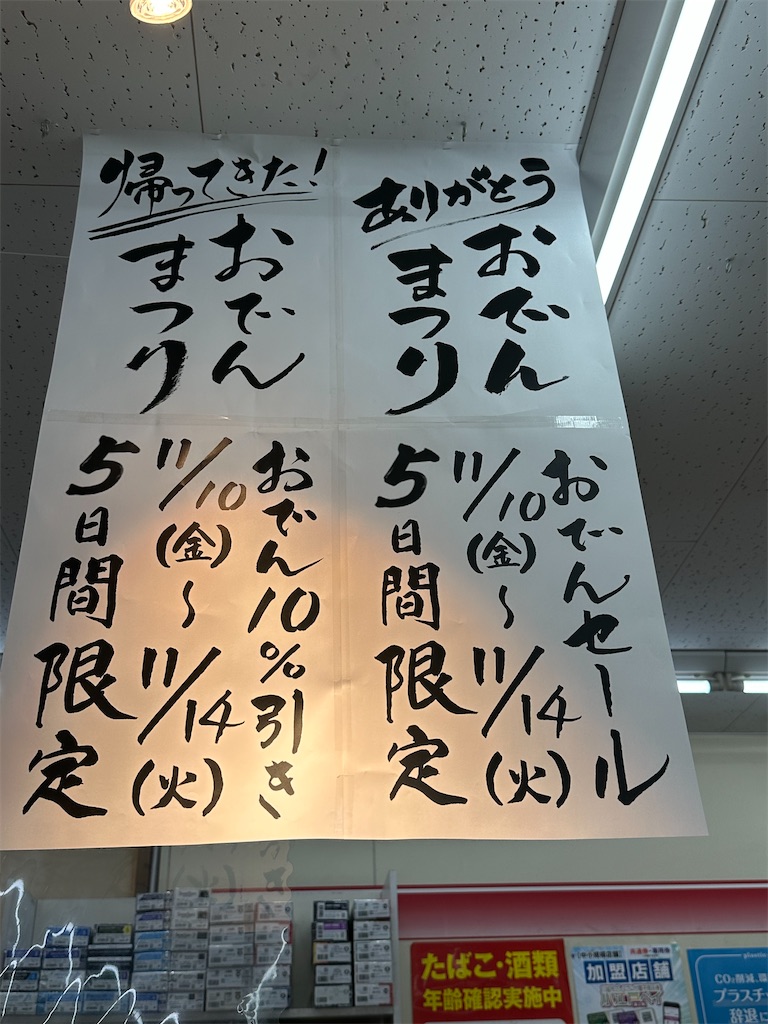 ありがとう
おでん
まつり
おでんセール
11/10(金)~11/14(火)
5日間限定
帰ってきた!
おでん
まつり
おでん10%引き
11/10(金)~11/14(火)
5日間限定
たばこ・酒類
年齢確認実施中
加盟店舗
CO2削減、
プラスチ
辞退に